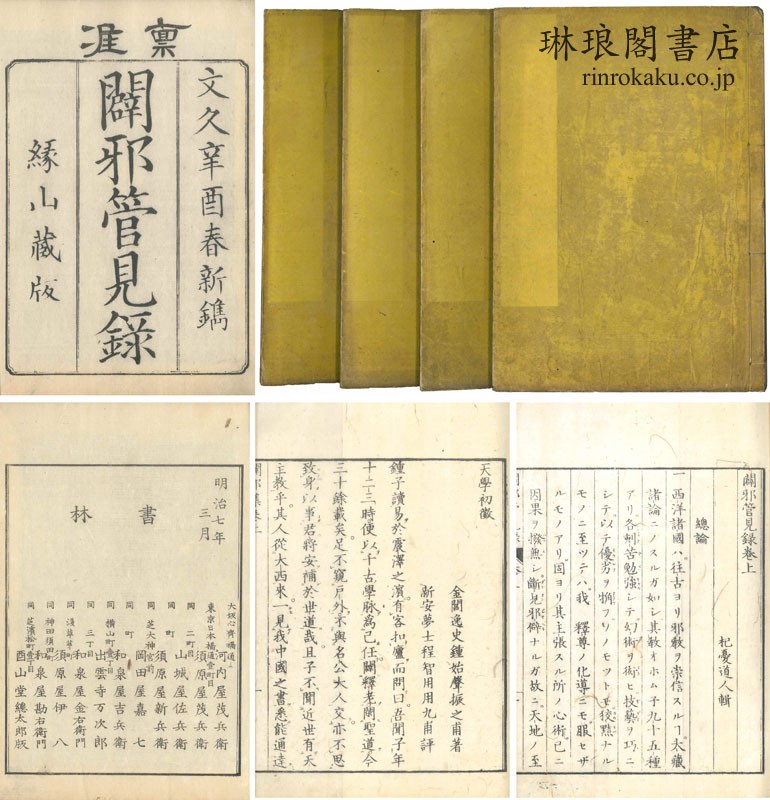 稟准
文久辛酉春新鐫
闢邪管見録
縁山藏版
琳琅閣書店
rinrokaku.co.jp
明治七年
三月
書林
大坂心齊橋通 河内屋茂兵衛
東京日本橋通壹町目 須原屋茂兵衛
同 二町目 山城屋佐兵衛
同 町 須原屋新兵衛
同 芝大神宮前 岡田屋嘉七
同 町 和泉屋吉兵衛
同 横山町壹丁目 出雲寺万次郎
同 三丁目 和泉屋金右衛門
同 淺草茅町 須原屋伊八
同 神田須田町 和泉屋勘右衛門
同 芝濱松町壹丁目 酉山堂總太郎版
天學初徴
金閶逸史鍾始聲振之甫著
新安夢士程智用用九甫評
鍾子讀易於震澤之濱有客扣廬而問曰吾聞子年
十二三時便以千古學脉爲己任闢釋老閑聖道今
三十餘載矣足不窺戸外不與名公大人交亦不思
致身以事君將安補於世道哉且子不聞近世有天
主教乎其人從大西來一見我中國之書悉能通達
闢邪管見録卷上
杞憂道人輯
總論
一西洋諸國ハ往古ヨリ邪教ヲ崇信スルヿ大藏
諸論ニノスルガ如シ其教オホム子九十五種
アリ各刻苦勉強シテ幻術ヲ衒ヒ技藝ヲ巧ニ
シテ以テ優劣ヲ搆フソノモツトモ狡黠ナル
モノニ至ツテハ我 釋尊ノ化導ニモ服セザ
ルモノアリ固ヨリ其主張スル所ノ心術已ニ
因果ヲ撥無シ斷見邪僻ナルガ故ニ天地ノ至